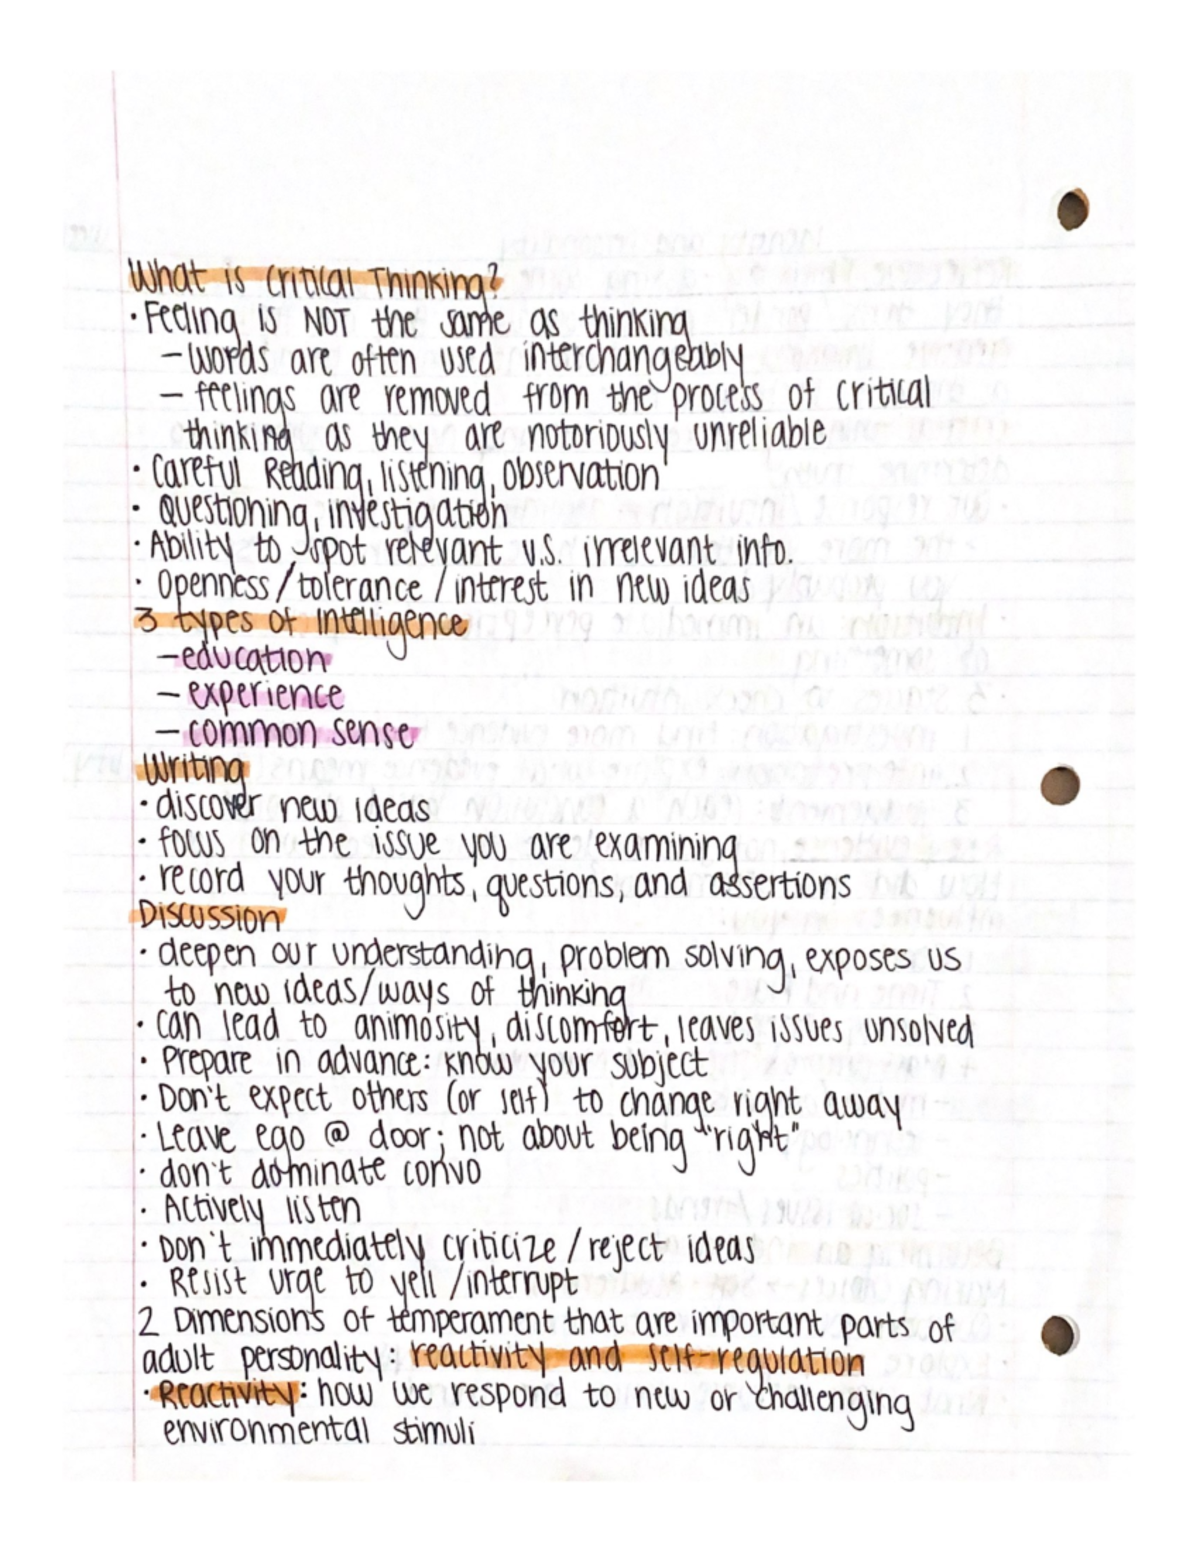 What is Critical Thinking?
· Feeling is NOT the same as thinking
– words are often used interchangeably
– feelings are removed from the process of critical
thinking as they are notoriously unreliable
· Careful Reading, listening, observation
· Questioning, investigation
· Ability to spot relevant v.s. irrelevant info.
· Openness/tolerance/interest in new ideas
3 types of Intelligence
– education
– experience
– common sense
Writing
· discover new ideas
· focus on the issue you are examining
· record your thoughts, questions, and assertions
Discussion
· deepen our understanding, problem solving, exposes us
to new ideas/ways of thinking
· can lead to animosity, discomfort, leaves issues unsolved
· Prepare in advance: know your subject
· Don't expect others (or self) to change right away
· Leave ego @ door; not about being "right"
· don't dominate convo
· Actively listen
· Don't immediately criticize/reject ideas
· Resist urge to yell/interrupt
2 Dimensions of temperament that are important parts of
adult personality: reactivity and self-regulation
· Reactivity: how we respond to new or challenging
environmental stimuli